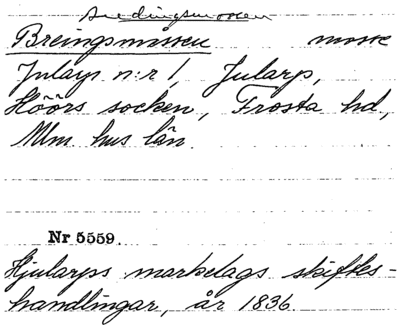 Bredingsmossen
Breingsmåssen mosse
Julayp n:r 1, Jularp,
Höörs socken, Frosta hd,
Mlm. hus län.
Nr 5559.
Hjularps markelags skiftes-
handlingar, år 1836.